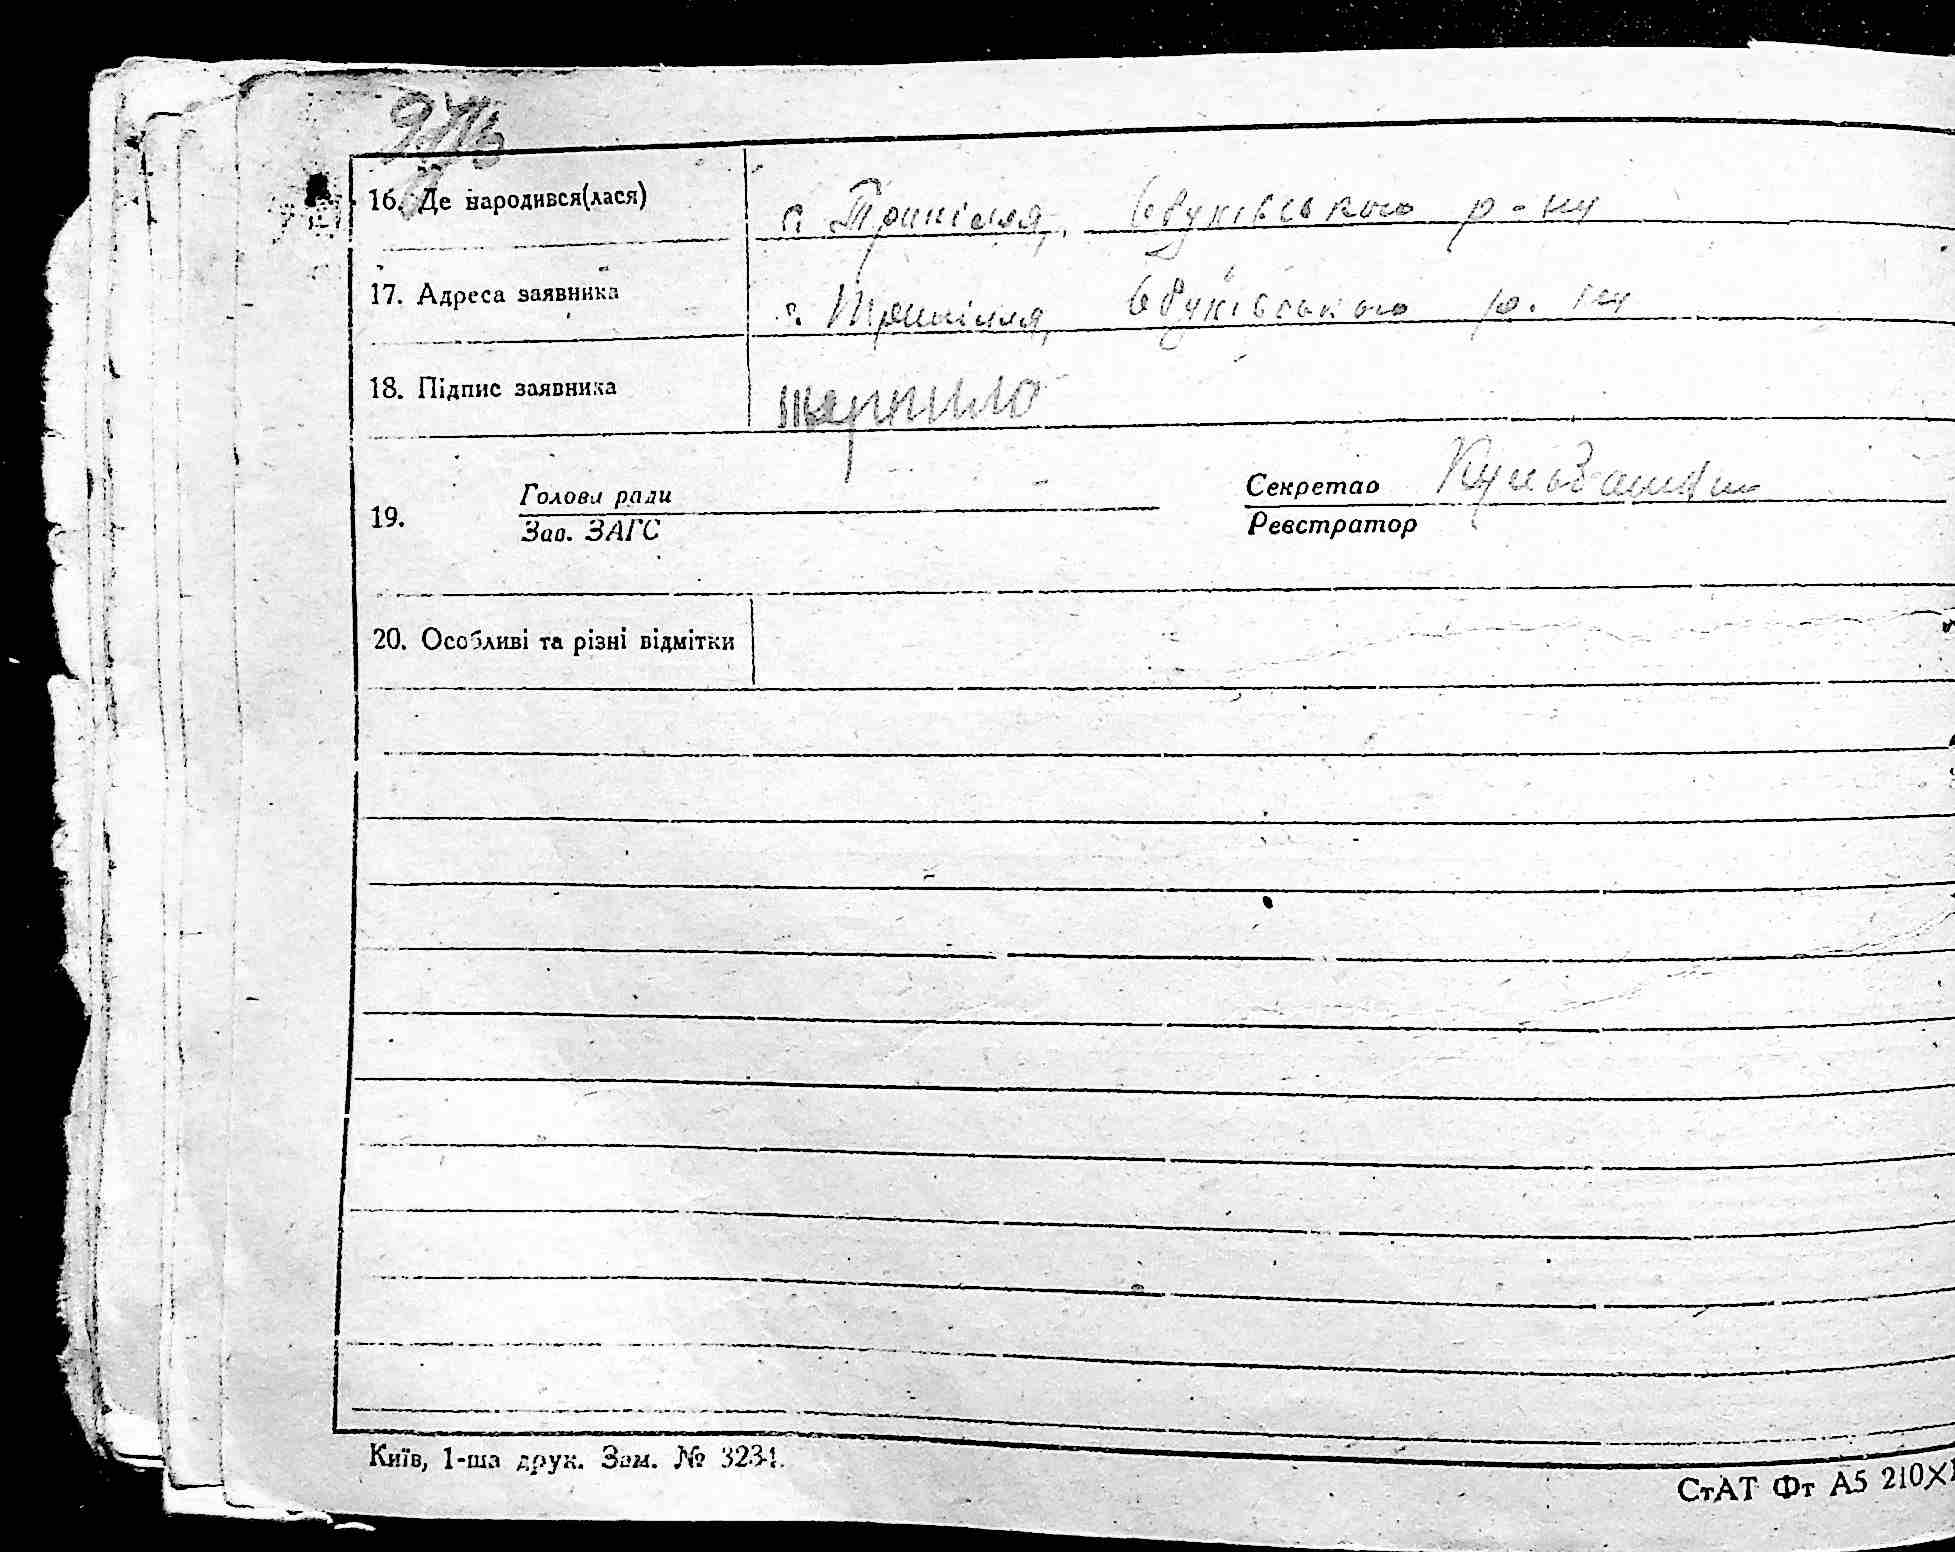 16. Де народився(лася) с. Трипілля, Обухівського р-ну
17. Адреса заявника с. Трипілля, Обухівського р-ну
18. Підпис заявника
19. Голова ради Секретар
Зав. ЗАГС Реєстратор
20. Особливі та різні відмітки
Київ, 1-ша друк. Зам. № 3234.
СтАТ Фт А5 210×